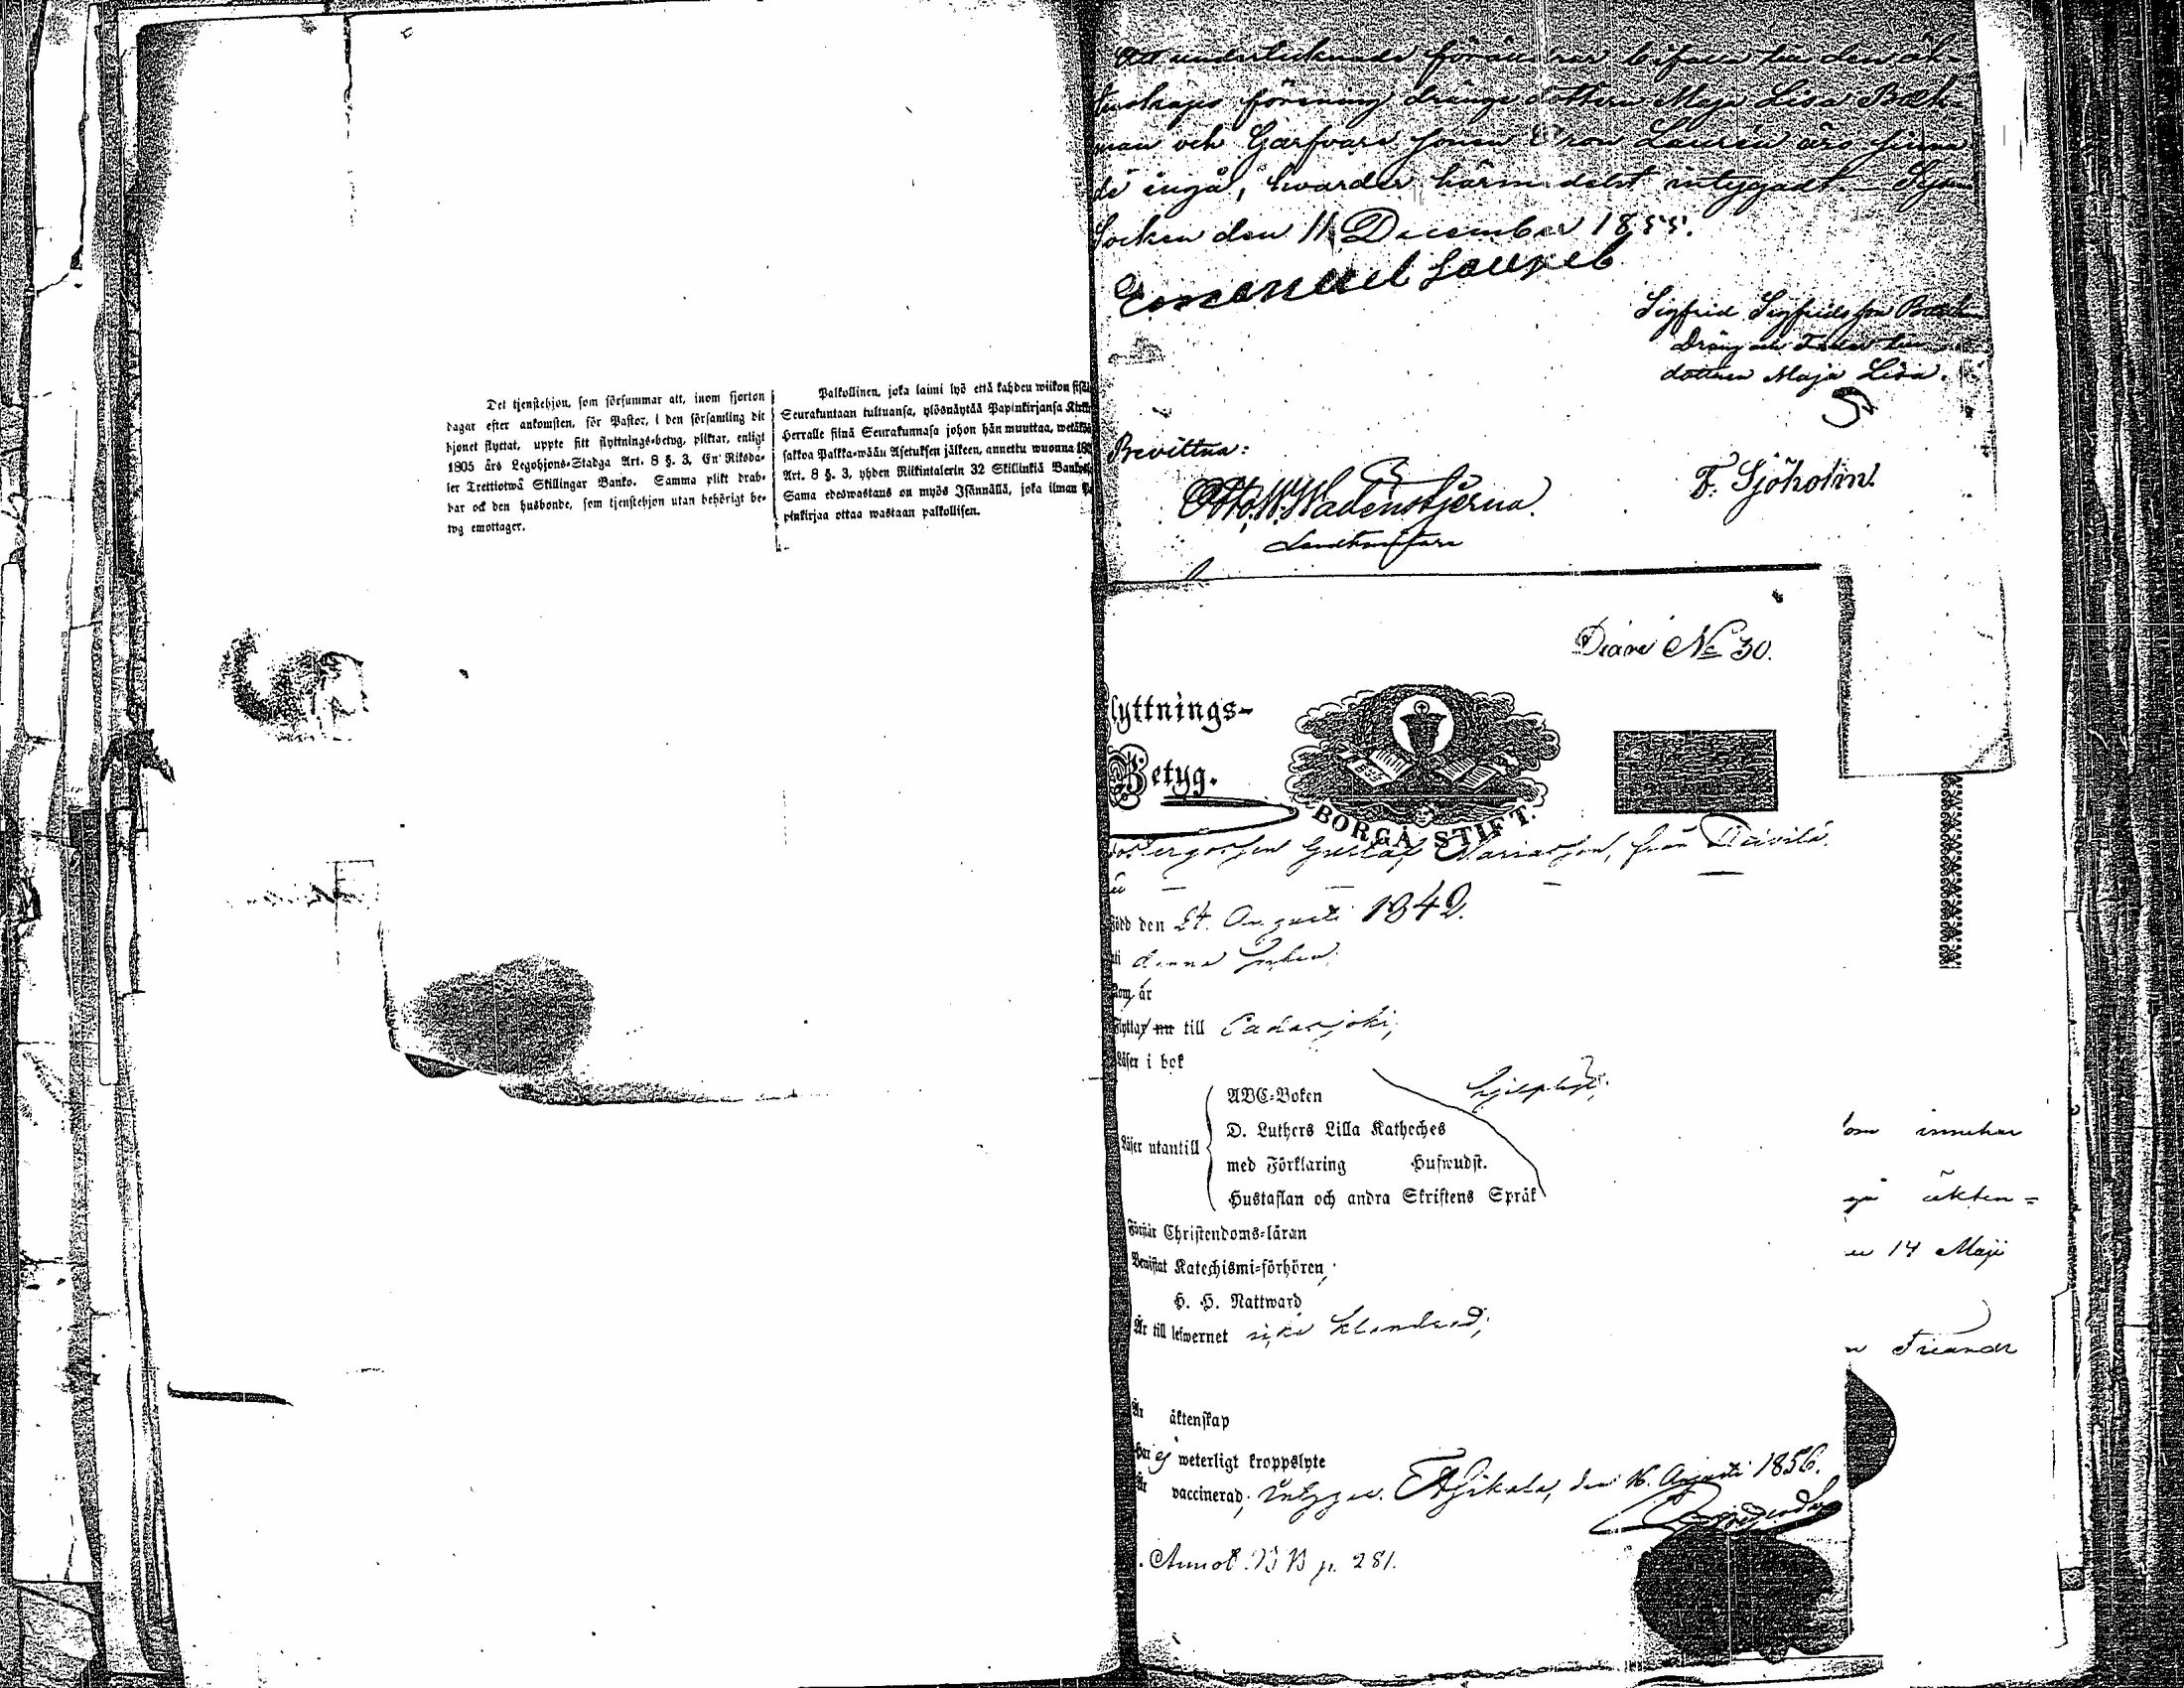 Det tjenstehjon, som försummar att, inom fjorton
dagar efter ankomsten, för Pastor, i den församling dit
hjonet flyttat, uppte sitt flyttnings-betyg, pliktar, enligt
1805 års Legohjons-Stadga Art. 8 §. 3, En Riksda-
ler Trettiotwå Skillingar Banko. Samma plikt drab-
bar ock den husbonde, som tjenstehjon utan behörigt be-
tyg emottager.
Palkollinen, joka laimi lyö että kahden wiikon sisäl
Seurakuntaan tultuansa, ylösnäytää Papinkirjansa Kirkko
Herralle siinä Seurakunnasa johon hän muuttaa, wetäkön
sakkoa Palkka-wään Asetuksen jälkeen, annettu wuonna 180
Art. 8 §. 3, yhden Riikintalerin 32 Skillinkiä Bankos.
Sama edeswastaus on myös Isännällä, joka ilman Pa
pinkirjaa ottaa wastaan palkollisen.
Att undertecknade föräldrar bifalla till den äk-
tenskaps förening drängsdottern Maja Lisa Bäck-
man och Garfvare sonen Laurén äro sinna
de ingå, hvarder härmedelst intygadt
Socken den 11 December 1855.
Emanuel
Sigfrid Sigfridsson Bäck
Dräng och Fader till
dottren Maja Lisa.
Bevittna:
Otto W. Wadenstjerna.
Landtmätare
F. Sjöholm
Diarie No 30.
lyttnings-
Betyg.
BORGÅ STIFT.
ostergossen Gustaf Mariasson, från
född den 24. Augusti 1842.
i denna Socken
kom år
flyttar nu till Padasjoki,
Läser i bok
ABC-Boken
hjelpligt;
Läser utantill
D. Luthers Lilla Katheches
med Förklaring Hufwudst.
Hustaflan och andra Skriftens Språk
Förstår Christendoms-läran
Bewistat Katechismi-förhören,
H. H. Nattward
Är till lefwernet icke klandrad;
Är äktenskap
Har ej weterligt kroppslyte
Är vaccinerad; intygar. den 16. Augusti 1856.
Annot. B B p. 281.
som innehar
gå äkten=
14 Maji